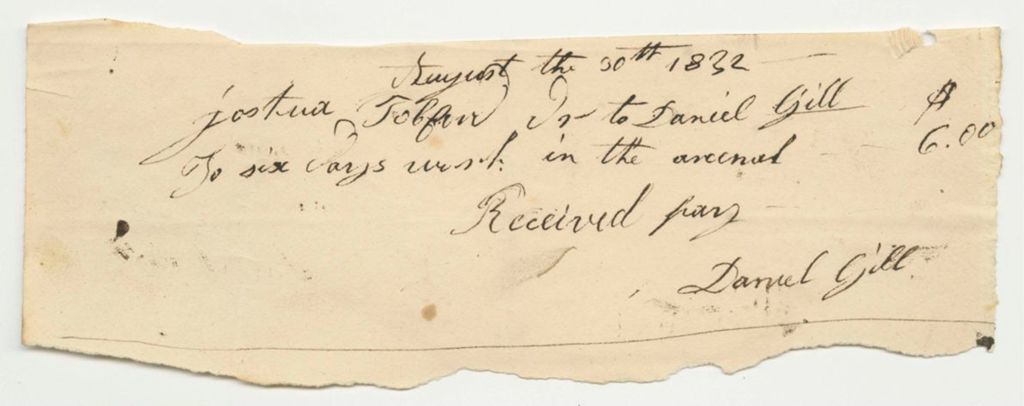 August the 30th 1832
joshua Tolford Dr to Daniel Gill $
To six Days work in the arcenal 6.00
Received pay
Daniel Gill